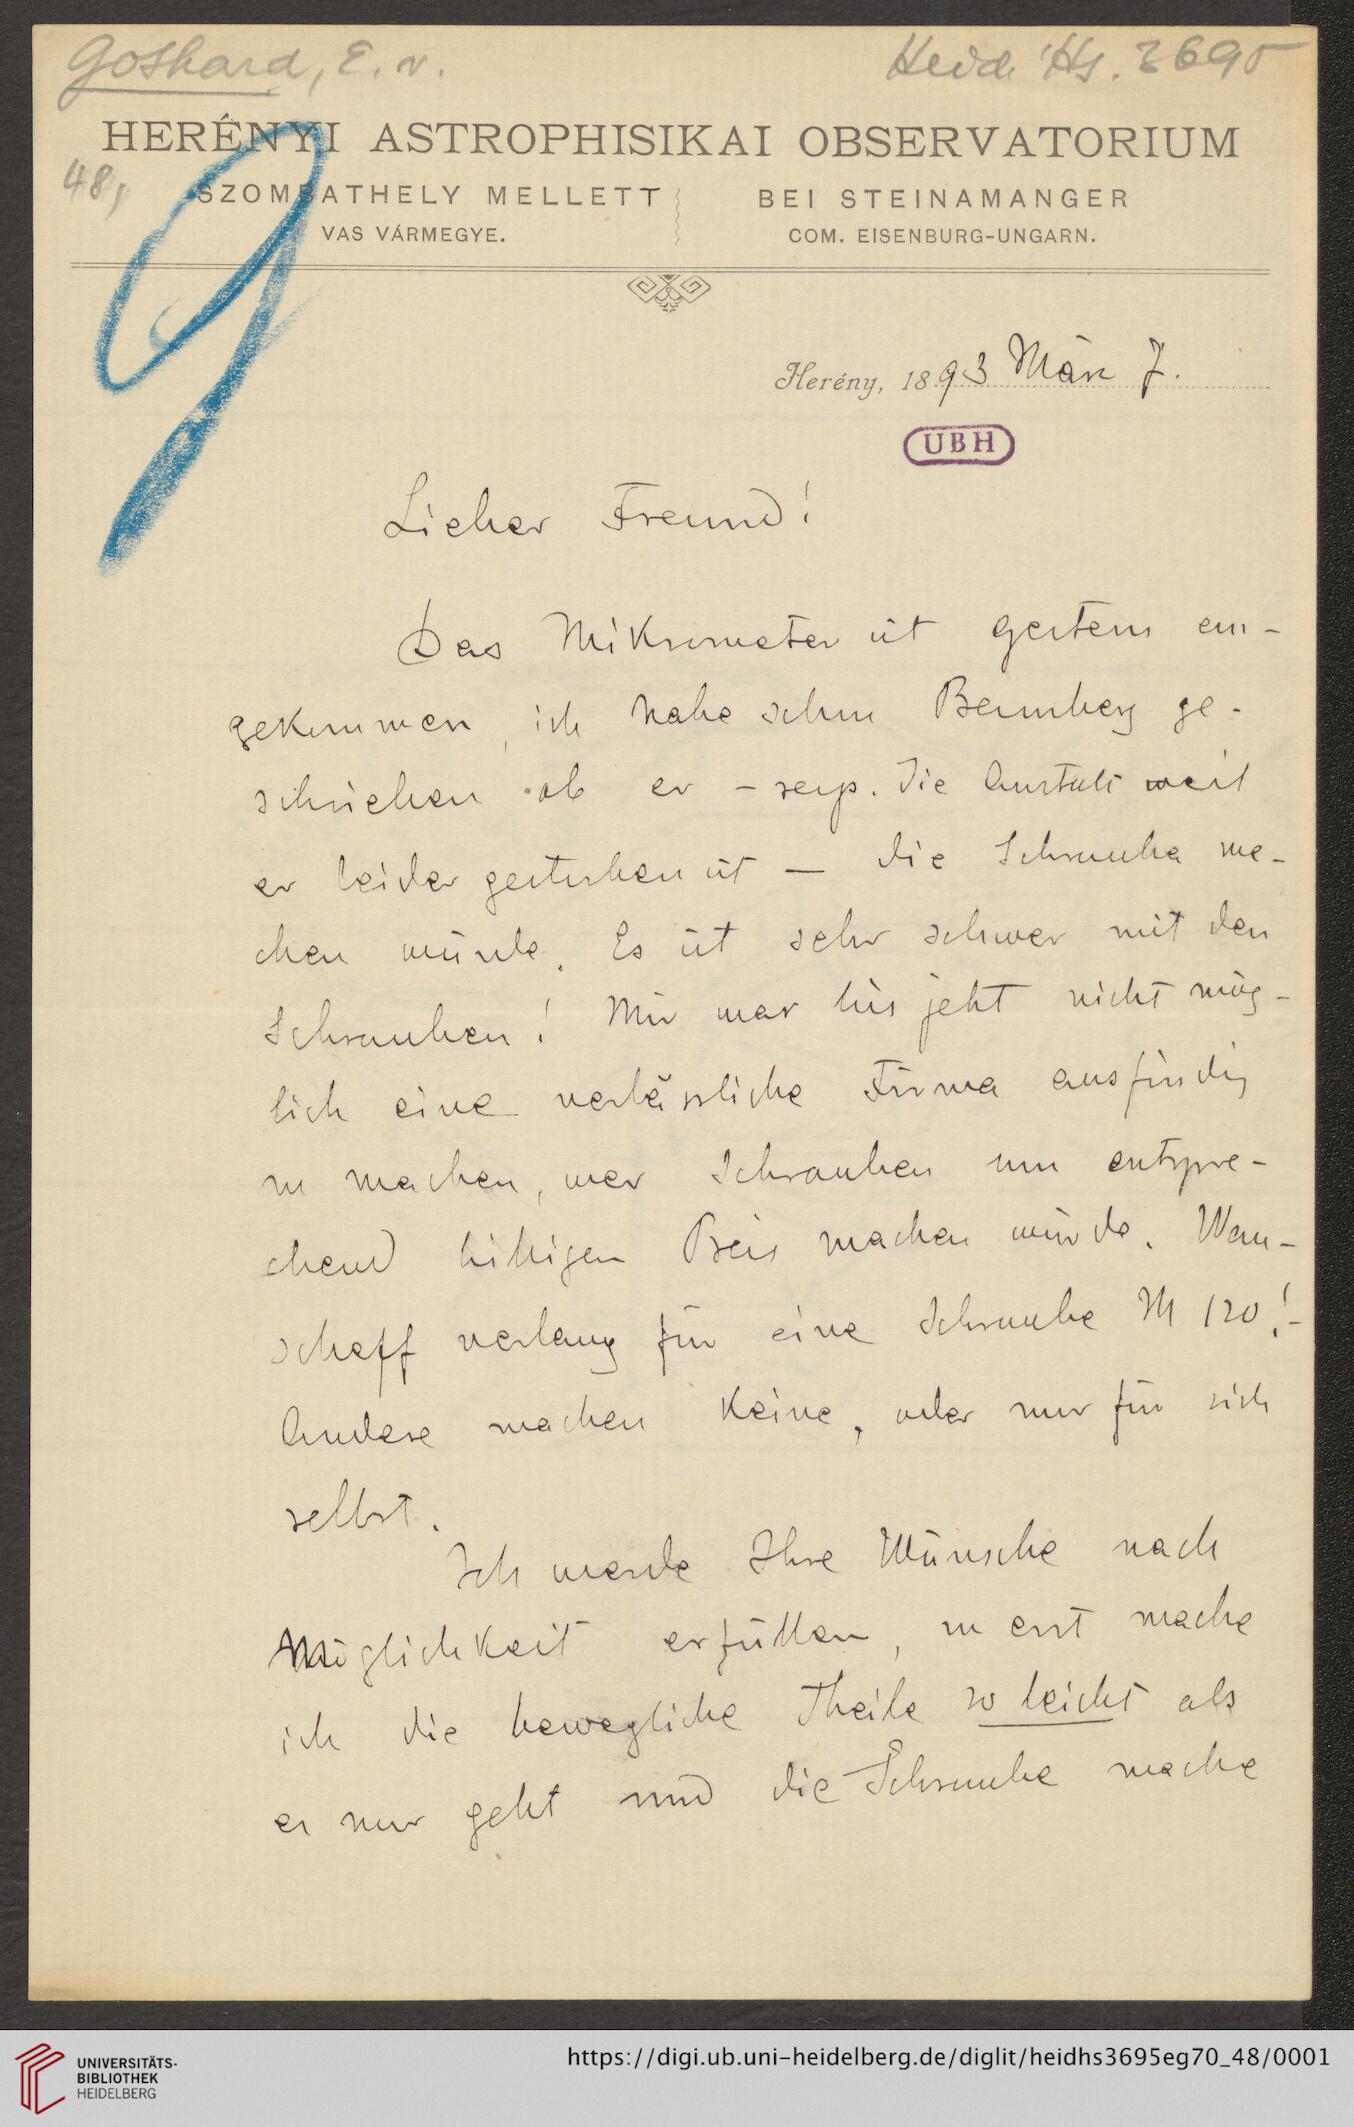 Gothard, E. v.
Heid. Hs. 3695
HERÉNYI ASTROPHISIKAI OBSERVATORIUM
48,
SZOMBATHELY MELLETT
VAS VÁRMEGYE.
BEI STEINAMANGER
COM. EISENBURG-UNGARN.
Herény, 1893 März 7.
UBH
Lieber Freund!
Das Mikrometer ist gestern ein-
gekommen, ich habe schon Bamberg ge-
schrieben ob er – resp. die Anstalt weil
er leider gestorben ist – die Schraube ma-
chen würde. Es ist sehr schwer mit den
Schrauben! Mir war bis jetzt nicht mög-
lich eine verlässliche Firma ausfindig
zu machen, wer Schrauben um entspre-
chend billigen Preis machen würde. Wan-
schaff verlang für eine Schraube M 120!-
Andere machen keine, oder nur für sich
selbst.
Ich werde Ihre Wünsche nach
Möglichkeit erfüllen, zu erst mache
ich die bewegliche Theile so leicht als
es nur geht und die Schraube mache
UNIVERSITÄTS-
BIBLIOTHEK
HEIDELBERG
https://digi.ub.uni-heidelberg.de/diglit/heidhs3695eg70_48/0001